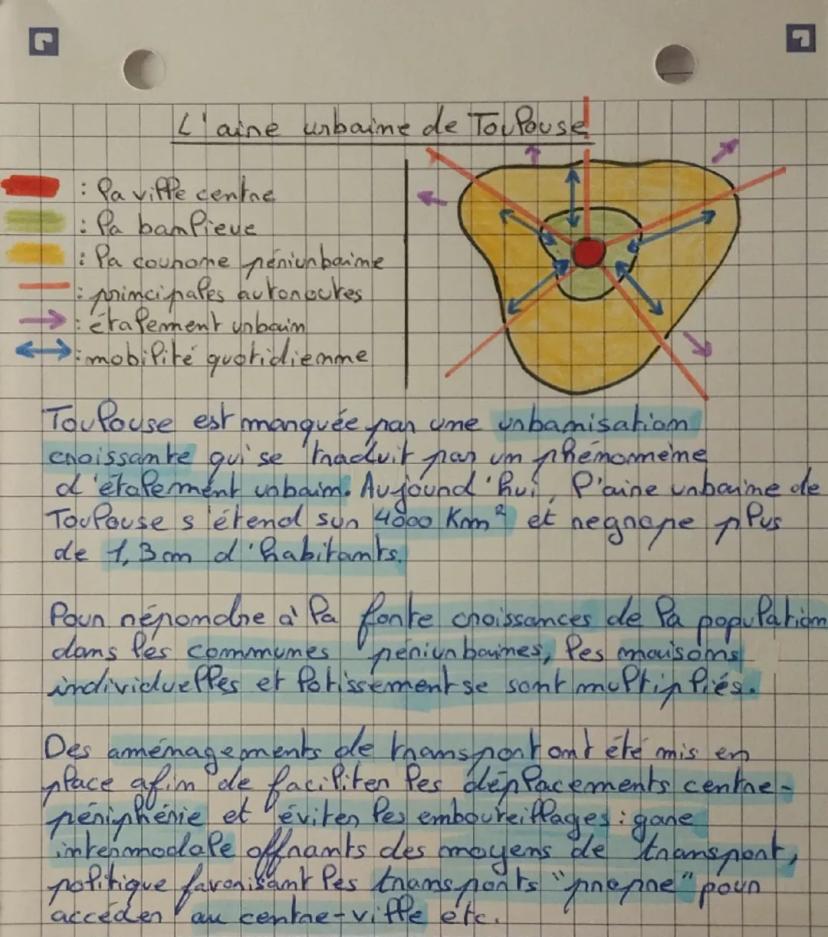 L'aire urbaine de Toulouse
: la ville centre
: la banlieue
: la couronne périurbaine
: principales autoroutes
: étalement urbain
: mobilité quotidienne
Toulouse est marquée par une urbanisation
croissante qui se traduit par un phénomène
d'étalement urbain. Aujourd'hui, l'aire urbaine de
Toulouse s'étend sur 4000 Km² et regrope plus
de 1,3 m d'habitants.
Pour répondre à la forte croissances de la population
dans les communes périurbaines, les maisons
individuelles et lotissement se sont multipliés.
Des aménagements de transport ont été mis en
place afin de faciliter les déplacements centre-
périphérie et éviter les emboureillages : gare
intermodale offrants des moyens de transport,
politique favorisant les transports "propre" pour
accéder au centre-ville etc.